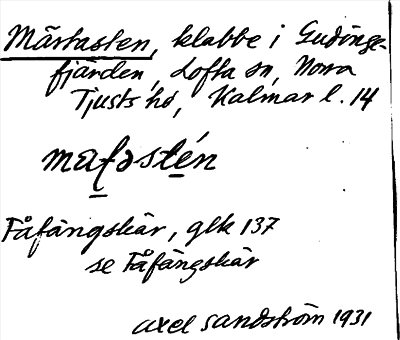 Märtasten, klabbe i Gudinge-
fjärden, Lofta sn, Norra
Tjusts hd, Kalmar l. 14
maʃəstén
Fåfängskär, glk 137
se Fåfängskär
Axel Sandström 1931